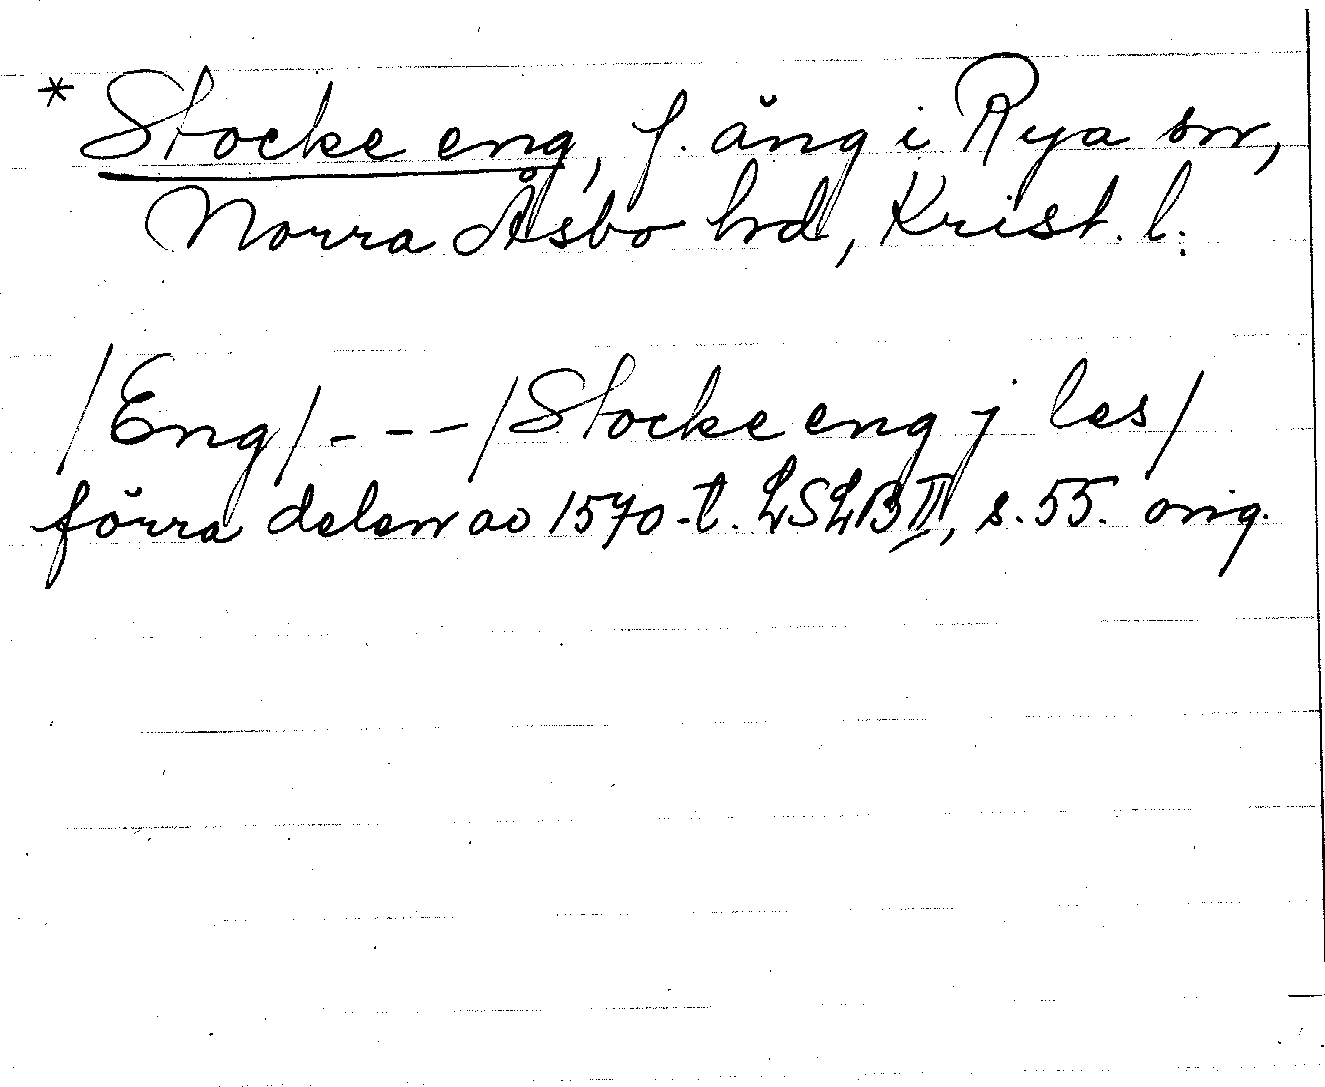 * Stocke eng, f. äng i Rya sn,
Norra Åsbo hd, Krist. l.
/Eng/ - - - /Stocke eng j las/
förra delen av 1570-t. LSLB III, s. 55. orig.